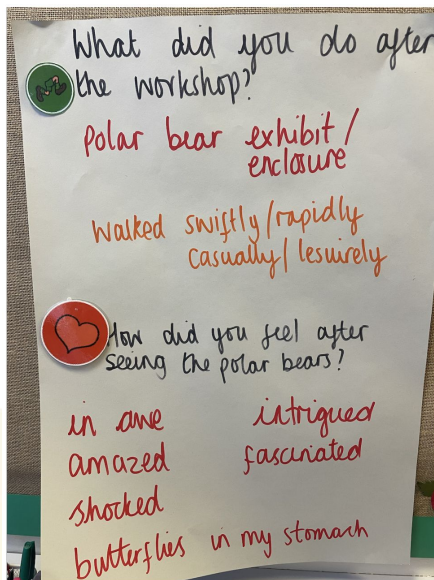 What did you do after
the workshop?
Polar bear exhibit/
enclosure
Walked swiftly/rapidly
casually/lesuirely
How did you feel after
seeing the polar bears?
in awe intrigued
amazed fascinated
shocked
butterflies in my stomach